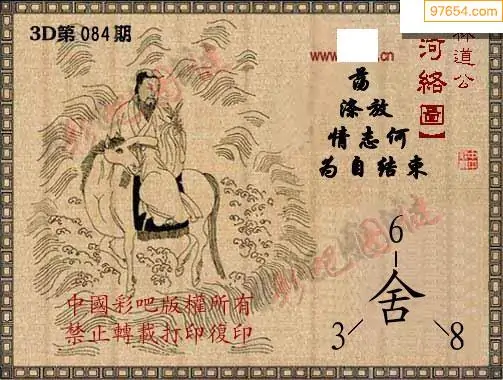 97654.com
3D第084期
河絡圖】
道公
荡
涤放
情志何
为自结束
6
舍
3
8
中國彩吧版權所有
禁止轉載打印復印